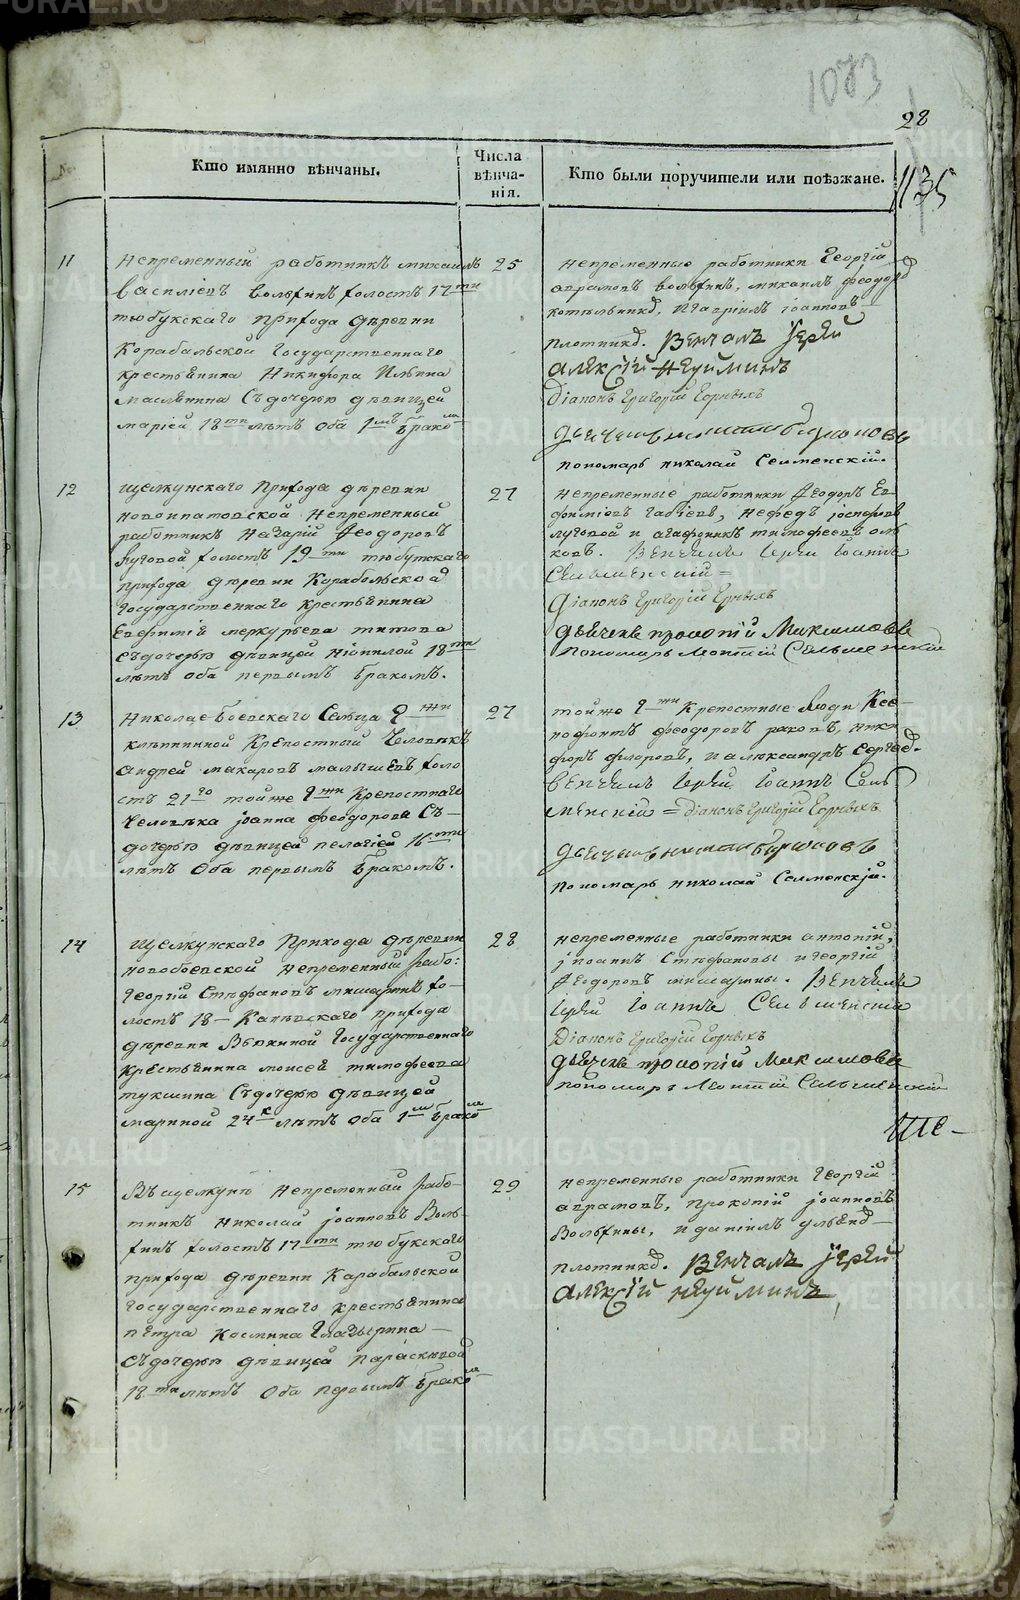 METRIKI.GASO-URAL.RU
1073
28
1135
№.
Кто имянно вѣнчаны.
Числа вѣнча-нія.
Кто были поручители или поѣзжане.
11
непременный работникъ михаилъ
василіевъ вольхинъ холостъ 17ти
тюбукскаго прихода деревни
Корабольской государственнаго
крестьянина Никифора Ильина
масленина Съ дочерью дѣвицей
маріей 18ти лѣтъ оба 1мъ бракомъ
25
непременные работники Георгій
аврамовъ вольхинъ, михаилъ феодор
котельник, и гавріилъ іоанновъ
плотник. Венчалъ Іерей
Алексій Неуйминъ
Діаконъ Григорій Горныхъ
пономарь николай Селменскій.
12
щелкунскаго прихода деревни
новоипатовской непременный
работникъ Назарій Феодоровъ
луговой холостъ 19ти тюбукскаго
прихода деревни Корабольской
государственнаго крестьянина
Евфимія меркурьева титова
съ дочерью дѣвицей неонилой 18ти
лѣтъ оба первымъ бракомъ.
27
непременные работники Феодоръ Ев-
фиміовъ, нефедъ іосифовъ
луговой и агафоникъ тимофеевъ
ковъ. Венчалъ Іерей Іоаннъ
Сельменскій =
Діаконъ Григорій Горныхъ
дьячекъ прокопій Максимовъ
пономарь Леонтій Сельменскій
13
Николаебоевскаго Сельца Гжи
клепининой Крепостный человекъ
Андрей макаровъ малышевъ холо
стъ 21го тойже Гжи Крепостнаго
человека іоанна феодорова Съ-
дочерью дѣвицей пелагіей 16ти
лѣтъ Оба первымъ бракомъ.
27
тойже Гжи Крепостные люди Ксе-
нофонтъ феодоровъ раковъ, ники
форъ флоровъ, и александръ Сергѣев.
венчалъ Іерей Іоаннъ Сель
менскій = Діаконъ Григорій Горныхъ
пономарь николай Селменскій.
14
Щелкунскаго Прихода деревни
новобоевской непременный рабо:
Георгій Стефановъ мишаринъ хо-
лостъ 18- прихода
деревни Вьюкиной государственнаго
крестьянина моисея тимофеева
тукшина Съ дочерью дѣвицей
мариной 24х лѣтъ оба 1мъ бракомъ
28
непременные работники антоній,
іоаннъ Стефановы и георгій
Феодоровъ мишарины. Венчалъ
Іерей Іоаннъ Сельменскій
Діаконъ Григорій Горныхъ
дьячекъ прокопій Максимовъ
пономарь Леонтій Сельменскій
15
Въ щелкуню непременный рабо-
тникъ николай іоанновъ Воль-
хинъ холостъ 17ти тюбукскаго
прихода деревни Карабольской
государственнаго крестьянина
петра космина Глазырина
съ дочерью дѣвицей Параскевой
18ти лѣтъ Оба первымъ бракомъ
29
непременные работники Георгій
аврамовъ, прокопій іоанновъ
Вольхины, и даніилъ
плотник. Венчалъ Іерей
Алексій Неуйминъ